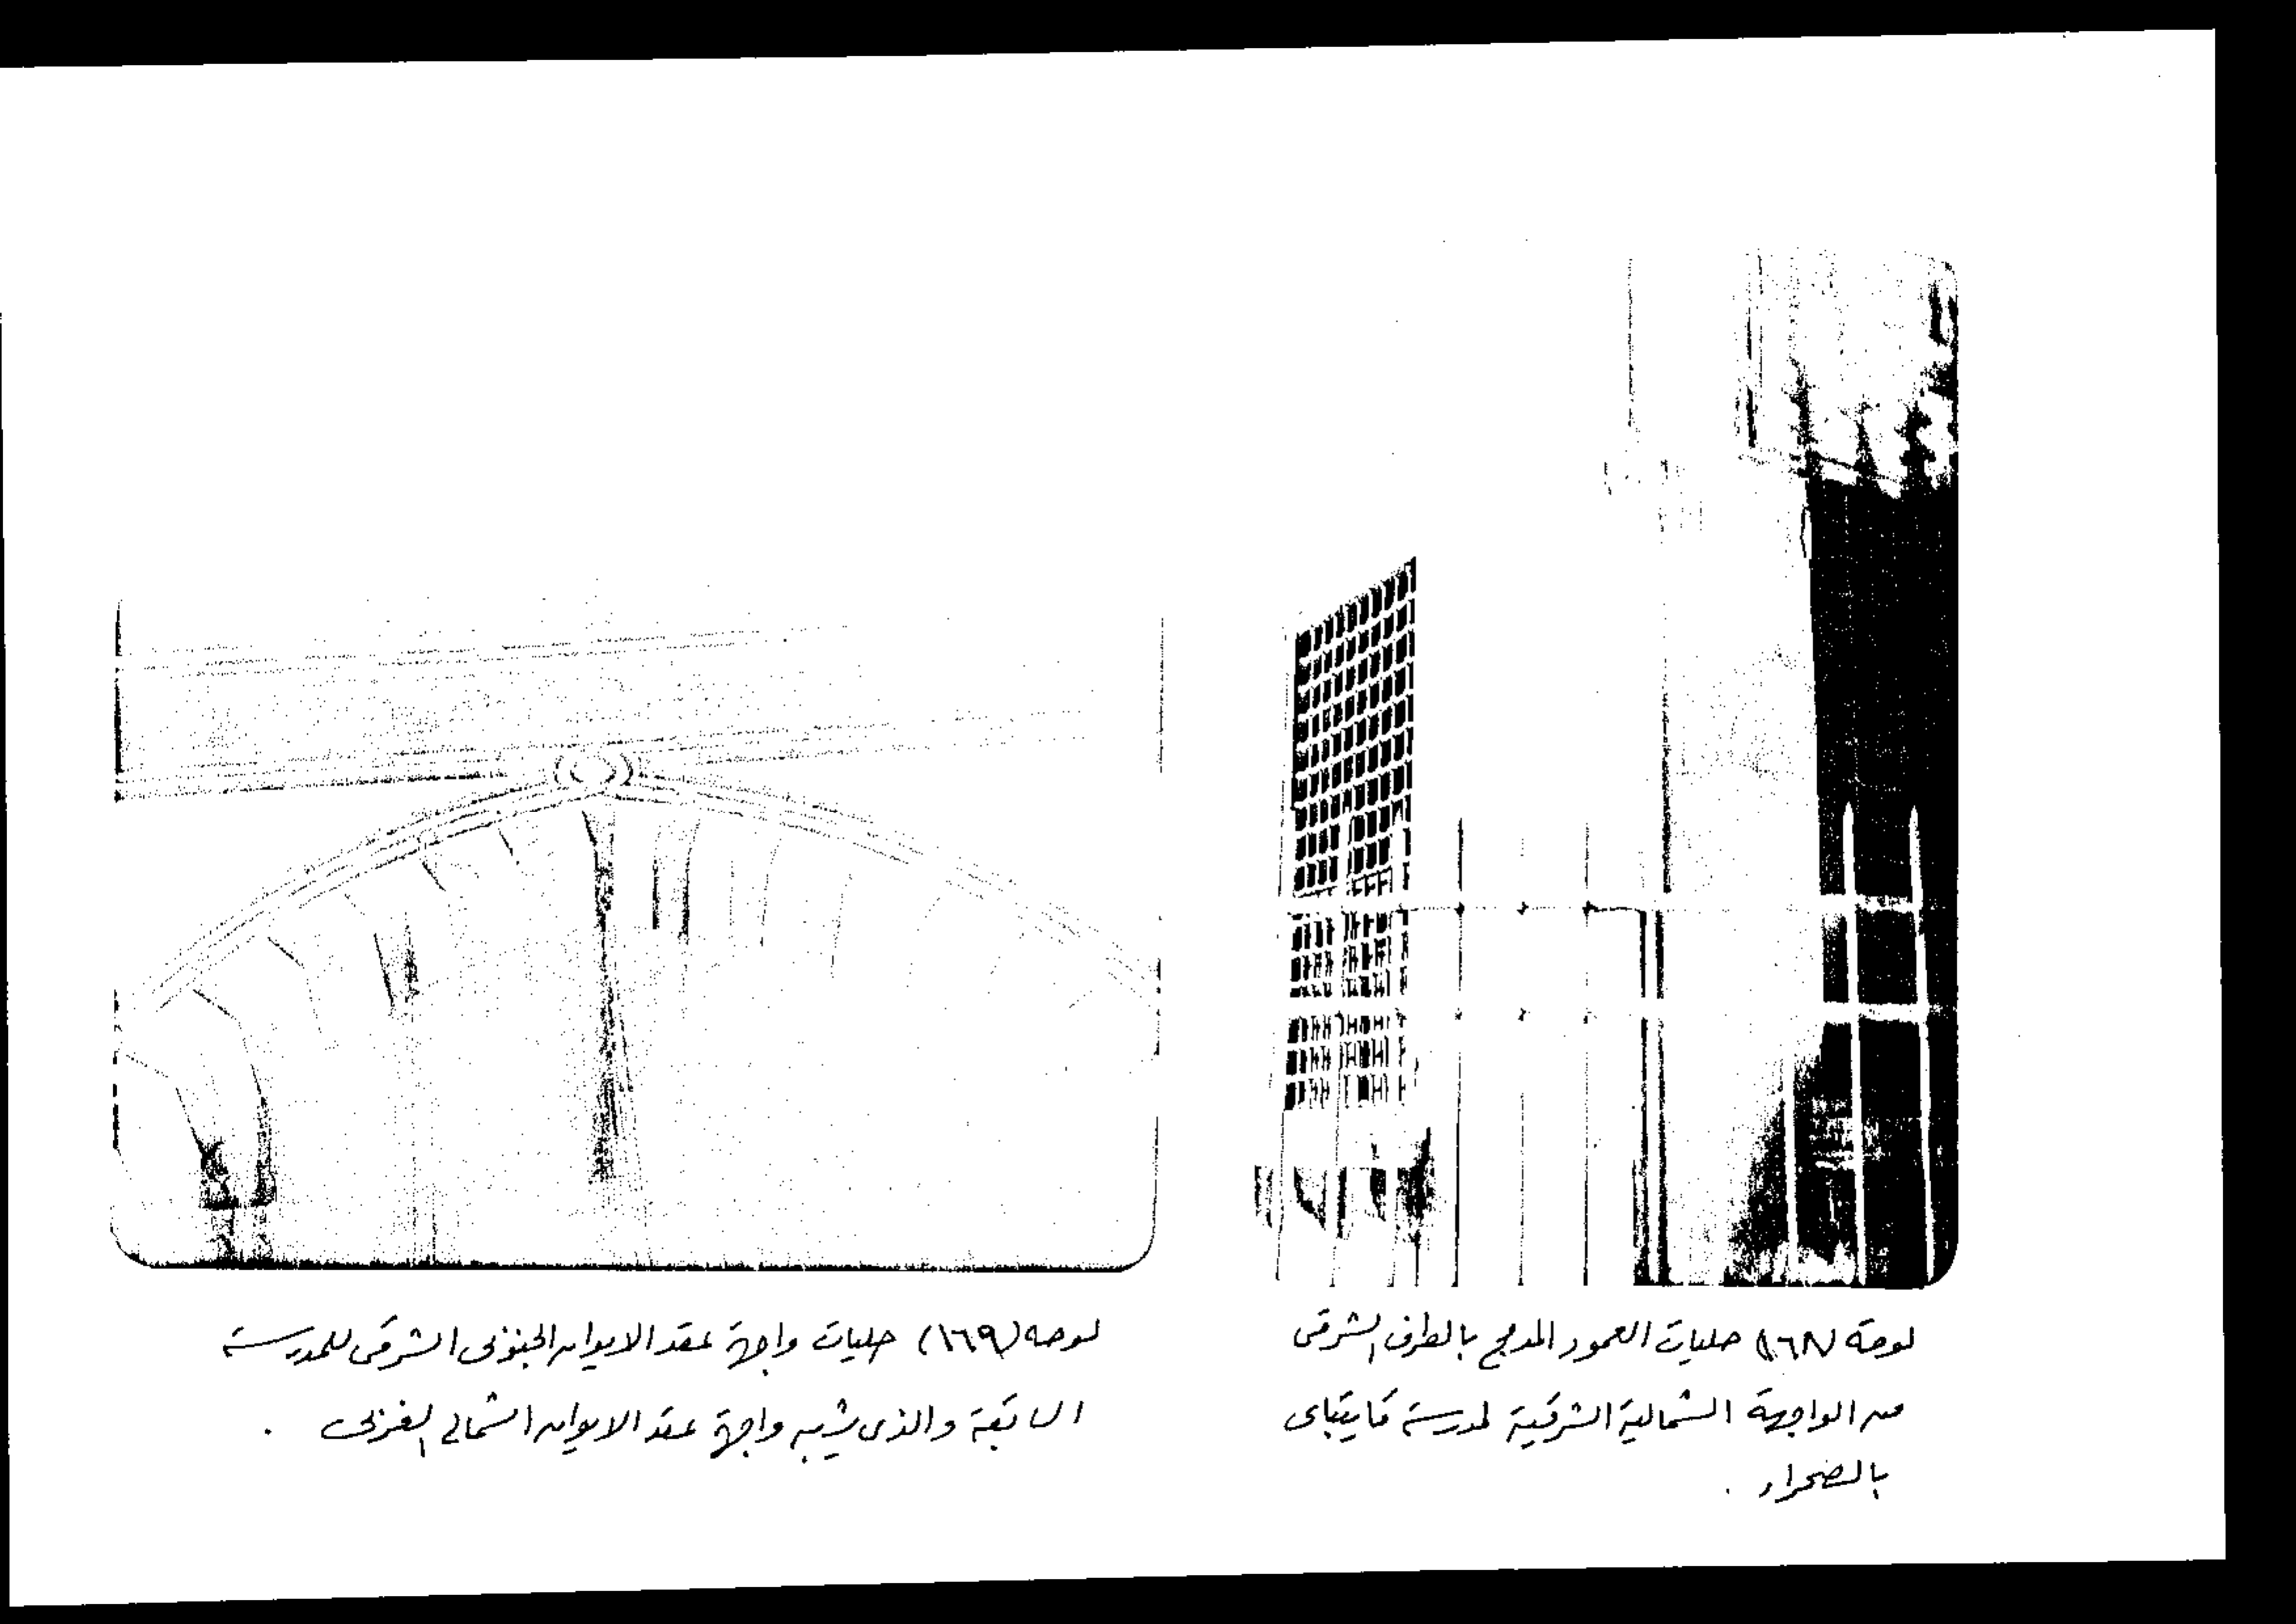 لوحة (١٦٨) حليات العمود المدمج بالطرف الشرقى
من الواجهة الشمالية الشرقية لمدرسة قايتباى
بالصحراء .
لوحه (١٦٩) حليات واجهة عقد الايوان الجنوبى الشرقى للمدرسة
السابقة والذى يشبه واجهة عقد الايوان الشمالى الغربى .